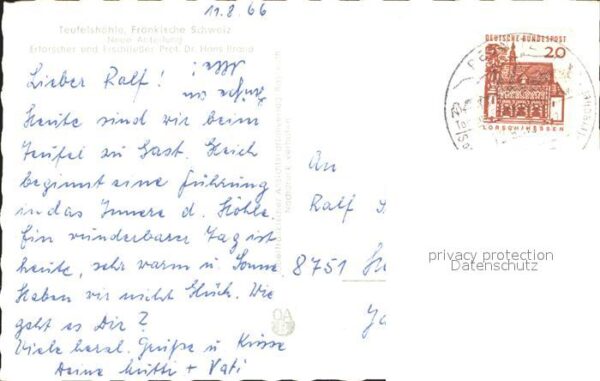 11.8.66
Teufelshöhle, Fränkische Schweiz
Neue Abteilung
Erforscher und Erschließer Prof. Dr. Hans Brand
Lieber Ralf!
Heute sind wir beim
Teufel zu Gast. Gleich
beginnt eine Führung
in das Innere d. Höhle.
Ein wunderbarer Tag ist
heute, sehr warm u. Sonne
Haben wir nicht Glück. Wie
geht es Dir?
Viele herzl. Grüße u Küsse
Deine Mutti + Vati
Nachdruck verboten
An
Ralf S
8751
DEUTSCHE BUNDESPOST
20
LORSCH/HESSEN
privacy protection
Datenschutz